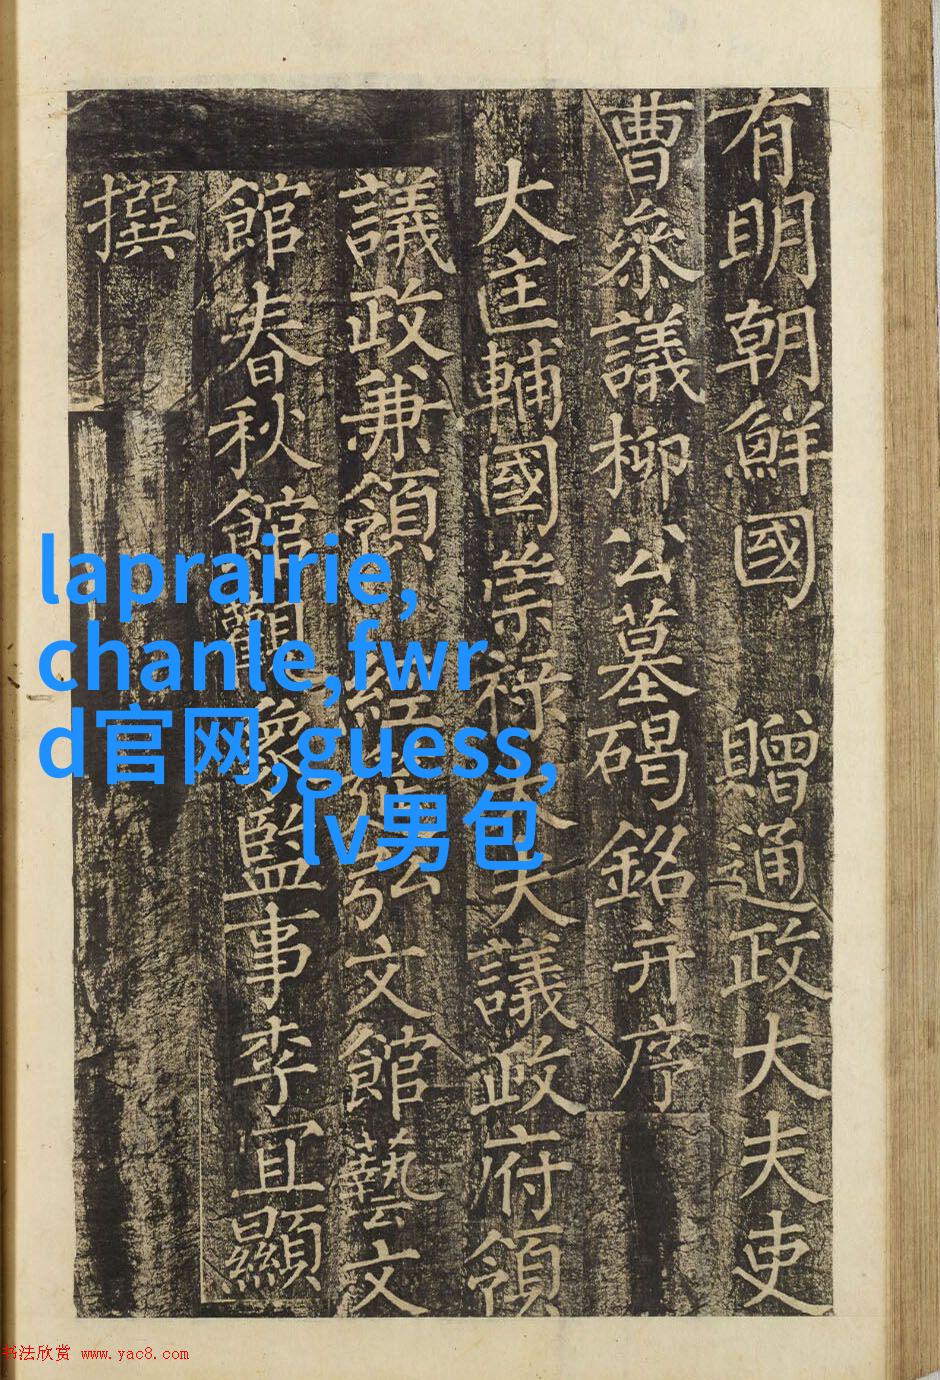 有明朝鮮國 贈通政大夫吏
曹叅議柳公墓碣銘并序
大匡輔國崇祿大夫議政府領
議政兼領經筵弘文館藝文
館春秋館觀象監事李宜顯
撰
laprairie,
chanle,fwr
d官网,guess,
lv男包
书法欣赏 www.yac8.com